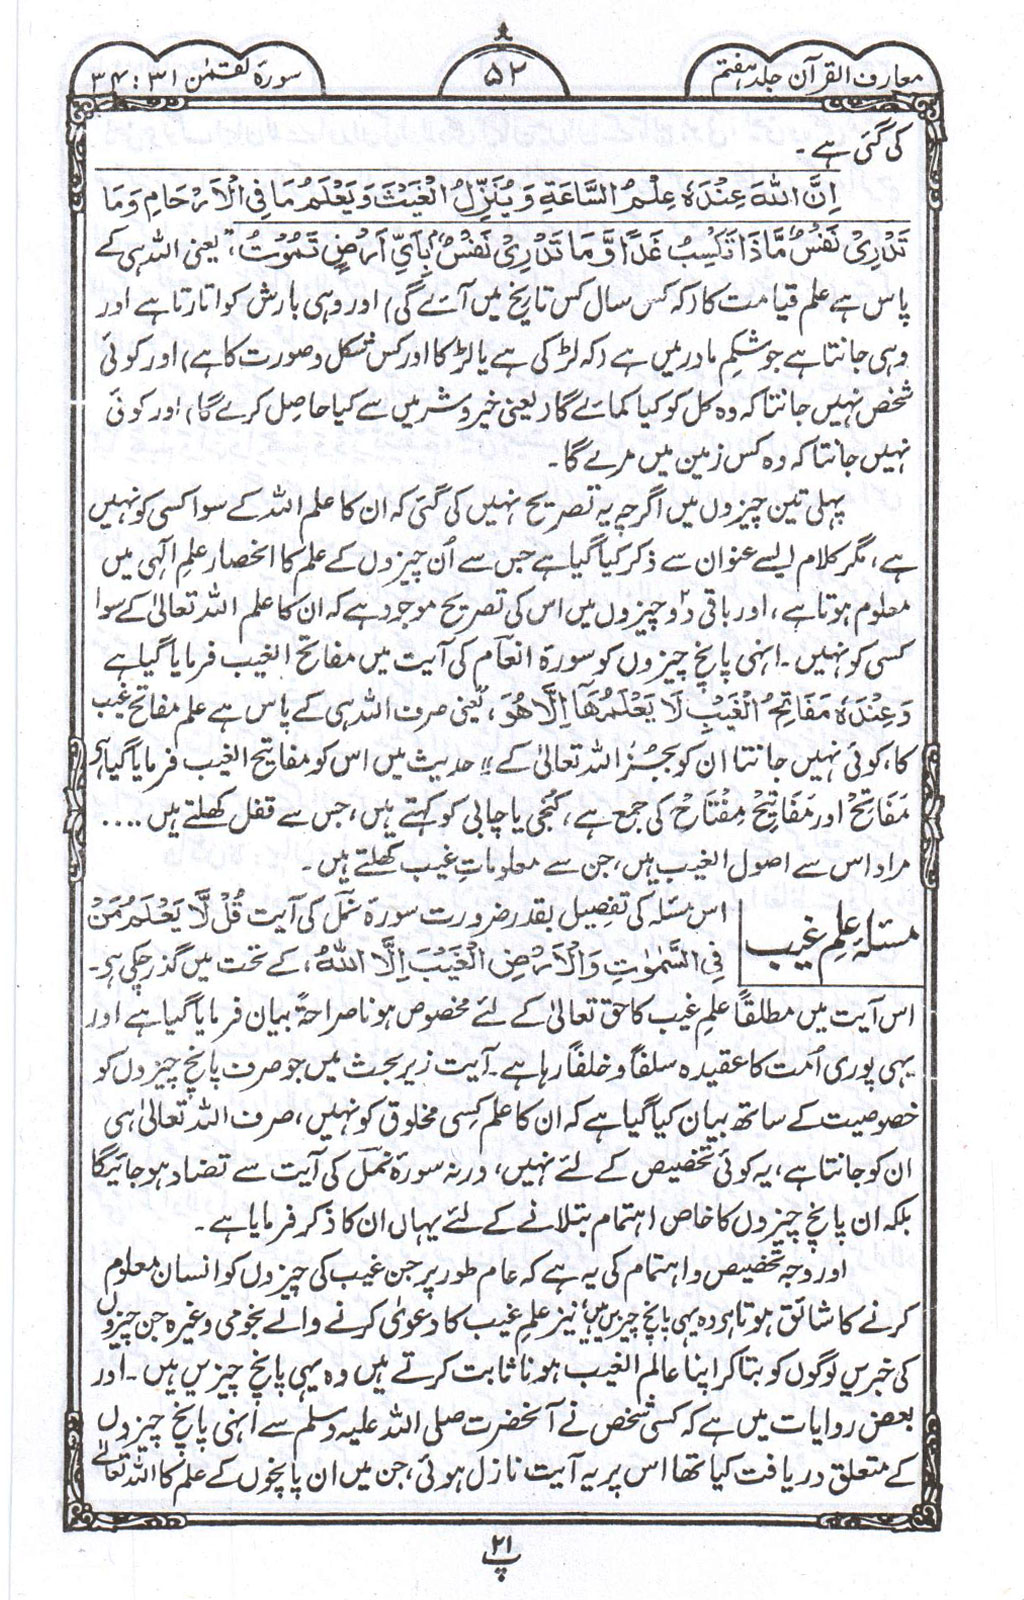 معارف القرآن جلد ہفتم
۵۲
سورۃ لقمٰن ۳۱ : ۳۴
کی گئی ہے۔
اِنَّ اللّٰهَ عِنْدَهٗ عِلْمُ السَّاعَةِ وَيُنَزِّلُ الْغَيْثَ وَيَعْلَمُ مَا فِي الْاَرْحَامِ وَمَا
تَدْرِيْ نَفْسٌ مَّاذَا تَكْسِبُ غَدًا وَّمَا تَدْرِيْ نَفْسٌۢ بِاَيِّ اَرْضٍ تَمُوْتُ، یعنی اللہ ہی کے
پاس ہے علم قیامت کا (کہ کس سال کس تاریخ میں آئے گی) اور وہی بارش کو اتارتا ہے اور
وہی جانتا ہے جو شکمِ مادر میں ہے (کہ لڑکی ہے یا لڑکا اور کس شکل و صورت کا ہے) اور کوئی
شخص نہیں جانتا کہ وہ کل کو کیا کمائے گا (یعنی خیر و شر میں سے کیا حاصل کرے گا) اور کوئی
نہیں جانتا کہ وہ کس زمین میں مرے گا۔
پہلی تین چیزوں میں اگرچہ یہ تصریح نہیں کی گئی کہ ان کا علم اللہ کے سوا کسی کو نہیں
ہے، مگر کلام ایسے عنوان سے ذکر کیا گیا ہے جس سے اُن چیزوں کے علم کا انحصار علمِ الٰہی میں
معلوم ہوتا ہے، اور باقی دو چیزوں میں اس کی تصریح موجود ہے کہ ان کا علم اللہ تعالیٰ کے سوا
کسی کو نہیں۔ انہی پانچ چیزوں کو سورۃ انعام کی آیت میں مفاتح الغیب فرمایا گیا ہے
وَعِنْدَهٗ مَفَاتِحُ الْغَيْبِ لَا يَعْلَمُهَآ اِلَّا هُوَ، یعنی صرف اللہ ہی کے پاس ہے علم مفاتحِ غیب
کا، کوئی نہیں جانتا ان کو بجز اللہ تعالیٰ کے" حدیث میں اس کو مفاتیح الغیب فرمایا گیا ہے
مَفَاتِحْ اور مَفَاتِیْحْ مِفْتَاحْ کی جمع ہے، کنجی یا چابی کو کہتے ہیں، جس سے قفل کھلتے ہیں ....
مراد اس سے اصول الغیب ہیں، جن سے معلوماتِ غیب کھلتے ہیں۔
مسئلہ علمِ غیب
اس مسئلہ کی تفصیل بقدر ضرورت سورۃ نمل کی آیت قُلْ لَّا يَعْلَمُ مَنْ
فِي السَّمٰوٰتِ وَالْاَرْضِ الْغَيْبَ اِلَّا اللّٰهُ، کے تحت میں گذر چکی ہے۔
اس آیت میں مطلقاً علم غیب کا حق تعالیٰ کے لئے مخصوص ہونا صراحۃً بیان فرمایا گیا ہے اور
یہی پوری اُمت کا عقیدہ سلفاً و خلفاً رہا ہے۔ آیت زیر بحث میں جو صرف پانچ چیزوں کو
خصوصیت کے ساتھ بیان کیا گیا ہے کہ ان کا علم کسی مخلوق کو نہیں، صرف اللہ تعالیٰ ہی
ان کو جانتا ہے، یہ کوئی تخصیص کے لئے نہیں، ورنہ سورۃ نمل کی آیت سے تضاد ہو جائیگا
بلکہ ان پانچ چیزوں کا خاص اہتمام بتلانے کے لئے یہاں ان کا ذکر فرمایا ہے۔
اور وجہ تخصیص و اہتمام کی یہ ہے کہ عام طور پر جن غیب کی چیزوں کو انسان معلوم
کرنے کا شائق ہوتا ہے وہ یہی پانچ چیزیں ہیں، نیز علم غیب کا دعویٰ کرنے والے نجومی وغیرہ جن چیزوں
کی خبریں لوگوں کو بتا کر اپنا عالم الغیب ہونا ثابت کرتے ہیں وہ یہی پانچ چیزیں ہیں۔ اور
بعض روایات میں ہے کہ کسی شخص نے آنحضرت صلی اللہ علیہ وسلم سے انہی پانچ چیزوں
کے متعلق دریافت کیا تھا اس پر یہ آیت نازل ہوئی، جن میں ان پانچوں کے علم کا اللہ تعالیٰ
پ ۲۱